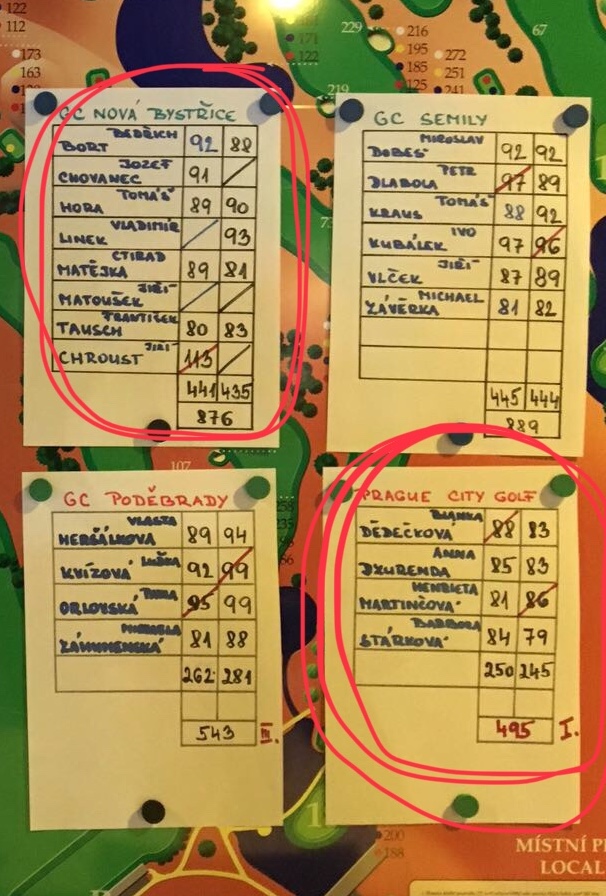 122
112
173
163
171
122
229
216
195
185
125
272
251
241
67
219
GC NOVÁ BYSTŘICE
BEDŘICH
BORT 92 88
JOZEF
CHOVANEC 91
TOMÁŠ
HORA 89 90
VLADIMÍR
LINEK 93
CTIRAD
MATĚJKA 89 81
JIŘÍ
MATOUŠEK
FRANTIŠEK
TAUSCH 80 83
JIŘÍ
CHROUST 113
441 435
876
GC SEMILY
MIROSLAV
DOBEŠ 92 92
PETR
DLABOLA 97 89
TOMÁŠ
KRAUS 88 92
IVO
KUBÁLEK 97 96
JIŘÍ
VLČEK 87 89
MICHAEL
ZÁVĚRKA 81 82
445 444
889
107
GC PODĚBRADY
VLASTA
HERŠÁLKOVÁ 89 94
LUĎKA
KVÍZOVÁ 92 99
ORLOVSKÁ 95 99
MICHAELA
ZÁHUMENSKÁ 81 88
262 281
543 III.
PRAGUE CITY GOLF
BLANKA
DĚDEČKOVÁ 88 83
ANNA
DZURENDA 85 83
HENRIETA
MARTINČOVÁ 81 86
BARBORA
STÁRKOVÁ 84 79
250 245
495 I.
200
188
MÍSTNÍ
LOCAL